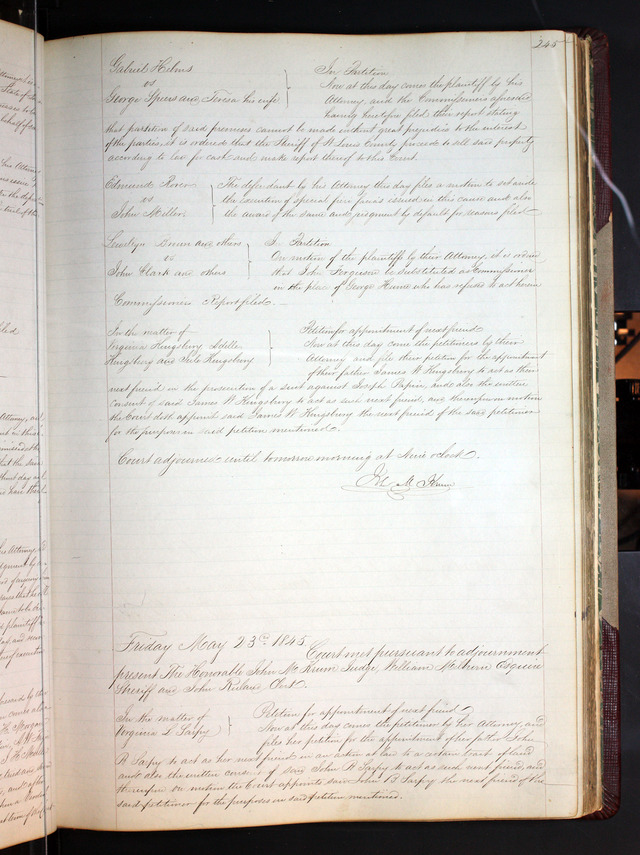 245
Gabriel Helms
vs
George Speers and Teresa his wife
In Partition
Now at this day comes the plaintiff by his
Attorney, and the Commissioners aforesaid
having heretofore filed their report stating
that partition of said premises cannot be made without great prejudice to the interest
of the parties, it is ordered that the Sheriff of St Louis County proceed to sell said property
according to law for cash and make report thereof to this Court.
Edmund
vs
John Miller
The defendant by his Attorney this day files a motion to set aside
the Execution of special fieri facias issued in this cause and also
the award of the same and judgment by default for reasons filed
Brown and others
vs
John Clark and others
In Partition
On motion of the plaintiffs by their Attorney, it is ordered
that John Ferguson be substituted as Commissioner
in the place of George Hume who has refused to act herein
Commissioners Report filed.
In the matter of
Virginia Kingsbury Adelle
Kingsbury and Jule Kingsbury
Petition for appointment of next friend
Now at this day come the petitioners by their
Attorney and file their petition for the appointment
of their father James W Kingsbury to act as their
next friend in the prosecution of a suit against Joseph Papin, and also the written
consent of said James W Kingsbury to act as such next friend, and thereupon on motion
the Court doth appoint said James W Kingsbury the next friend of the said petitioners
for the purposes in said petition mentioned.
Court adjourned until tomorrow morning at Nine oclock.
Jno M Krum
Friday May 23rd 1845
Court met pursuant to adjournment
present The Honorable John M Krum Judge, William Milburn Esquire
Sheriff and John Ruland Clerk.
In the matter of
Virginia L Sarpy
Petition for appointment of next friend
Now at this day comes the petitioner by her Attorney, and
files her petition for the appointment of her father John
B Sarpy to act as her next friend in an action at law to a certain tract of land
and also the written consent of said John B Sarpy to act as such next friend, and
thereupon on motion the Court appoints said John B Sarpy the next friend of the
said petitioner for the purposes in said petition mentioned.